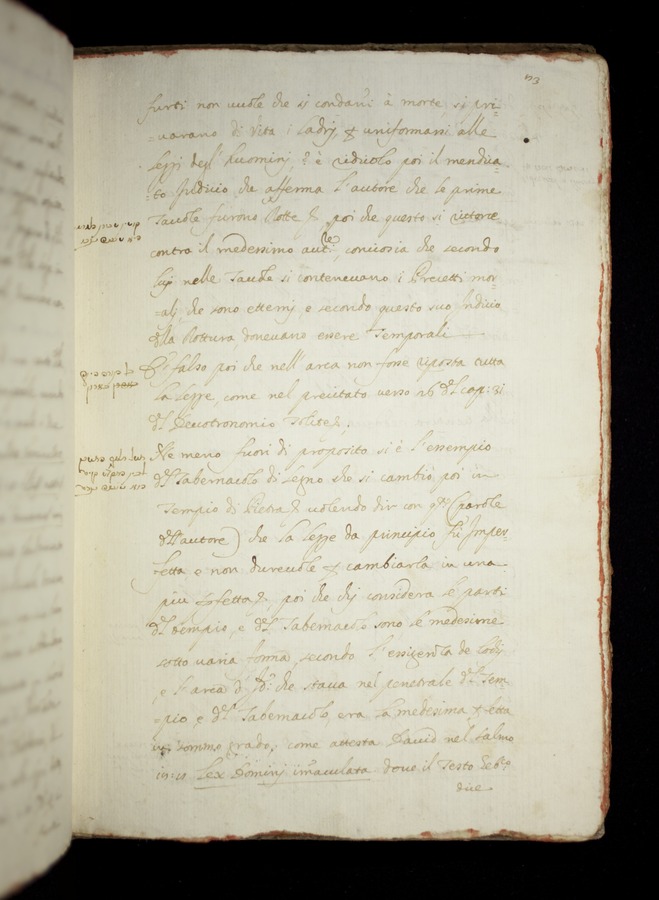 furti non vuole che si condani à morte, si pri-
-varano di Vita i Ladrj, et uniformarsi alle
Leggi degl' huominj? è ridicolo poi il mendica-
-to Indicio, che afferma l'autore che le prime
Tavole furono Rotte &, poi che questo si ritorce
contra il medessimo aut.re, conciosia che secondo
lui nelle Tavole si contenevano i Precetti mor-
-alj, che sono etternj, e secondo questo suo Indicio
della Rottura dovevano essere Temporali
È falso poi che nell'arca non fosse riposta tutta
La Legge, come nel precitato verso 26 del cap: 31
del Deuotronomio Tolite &,
Ne meno fuori di proposito si è l'essempio
del Tabernacolo di Legno che si cambiò poi in
Tempio di Pietra & volendo dir con (parole
dell'autore) che la Legge da principio fù Imper-
fetta e non durevole et cambiarla in una
più perfetta &, poi che chi considera le parti
del Tempio, e del Tabernacolo sono le medesime
sotto varia forma, secondo l'essigenza de
e l'arca di che stava nel penetrale del Tem-
-pio, e del Tabernacolo, era la medesima
sommo grado, come attesta David nel salmo
19:10 Lex Dominj immaculata dove il Testo Heb.o
dice